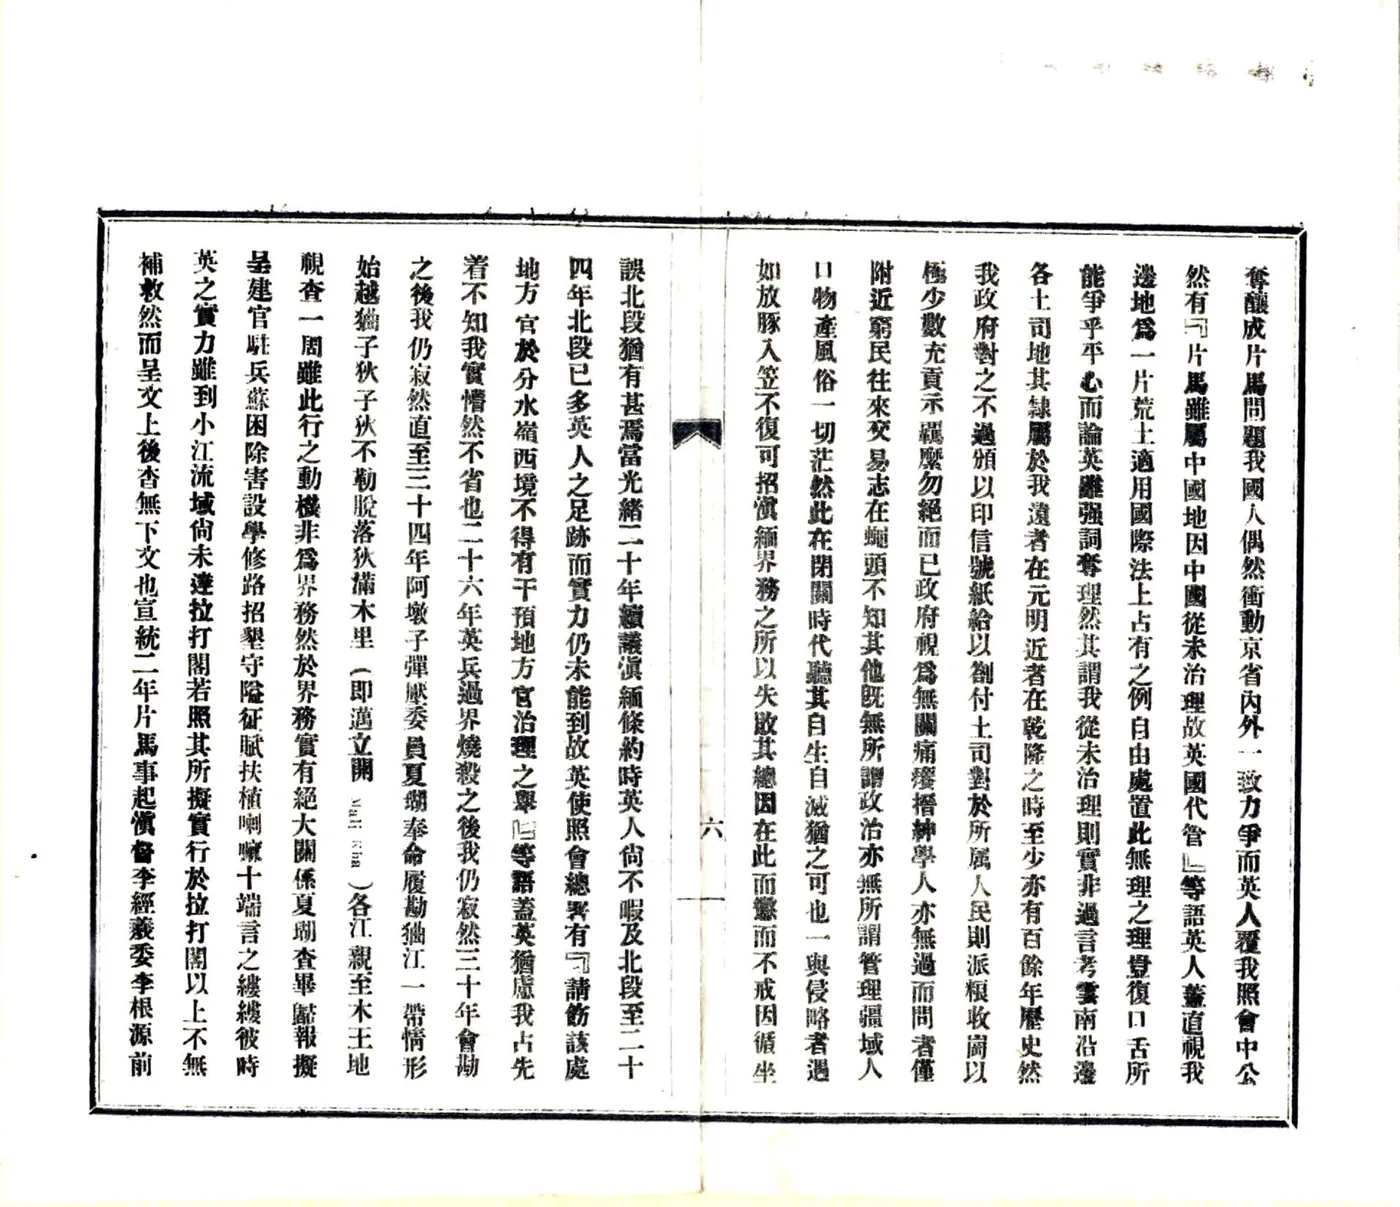 奪釀成片馬問題我國人偶然衝動京省內外一致力爭而英人覆我照會中公
然有「片馬雖屬中國地因中國從未治理故英國代管」等語英人蓋直視我
邊地爲一片荒土適用國際法上占有之例自由處置此無理之理豈復口舌所
能爭乎平心而論英雖强詞奪理然其謂我從未治理則實非過言考雲南沿邊
各土司地其隸屬於我遠者在元明近者在乾隆之時至少亦有百餘年歷史然
我政府對之不過頒以印信號紙給以劄付土司對於所属人民則派粮收崗以
極少數充貢示羈縻勿絕而已政府視爲無關痛癢搢紳學人亦無過而問者僅
附近窮民往來交易志在蠅頭不知其他既無所謂政治亦無所謂管理疆域人
口物產風俗一切茫然此在閉關時代聽其自生自滅猶之可也一與侵略者遇
如放豚入笠不復可招滇緬界務之所以失敗其總因在此而懲而不戒因循坐
六
誤北段猶有甚焉當光緒二十年續議滇緬條約時英人尙不暇及北段至二十
四年北段已多英人之足跡而實力仍未能到故英使照會總署有「請飭該處
地方官於分水嶺西境不得有干預地方官治理之舉」等語蓋英猶慮我占先
着不知我實懵然不省也二十六年英兵過界燒殺之後我仍寂然三十年會勘
之後我仍寂然直至三十四年阿墩子彈壓委員夏瑚奉命履勘㺄江一帶情形
始越㺄子狄子狄不勒脫落狄滿木里(即邁立開)各江親至木王地
視查一周雖此行之動機非爲界務然於界務實有絕大關係夏瑚查畢歸報擬
呈建官駐兵蘇困除害設學修路招墾守隘征賦扶植喇嘛十端言之縷縷彼時
英之實力雖到小江流域尙未達拉打閣若照其所擬實行於拉打閣以上不無
補救然而呈文上後杳無下文也宣統二年片馬事起滇督李經羲委李根源前